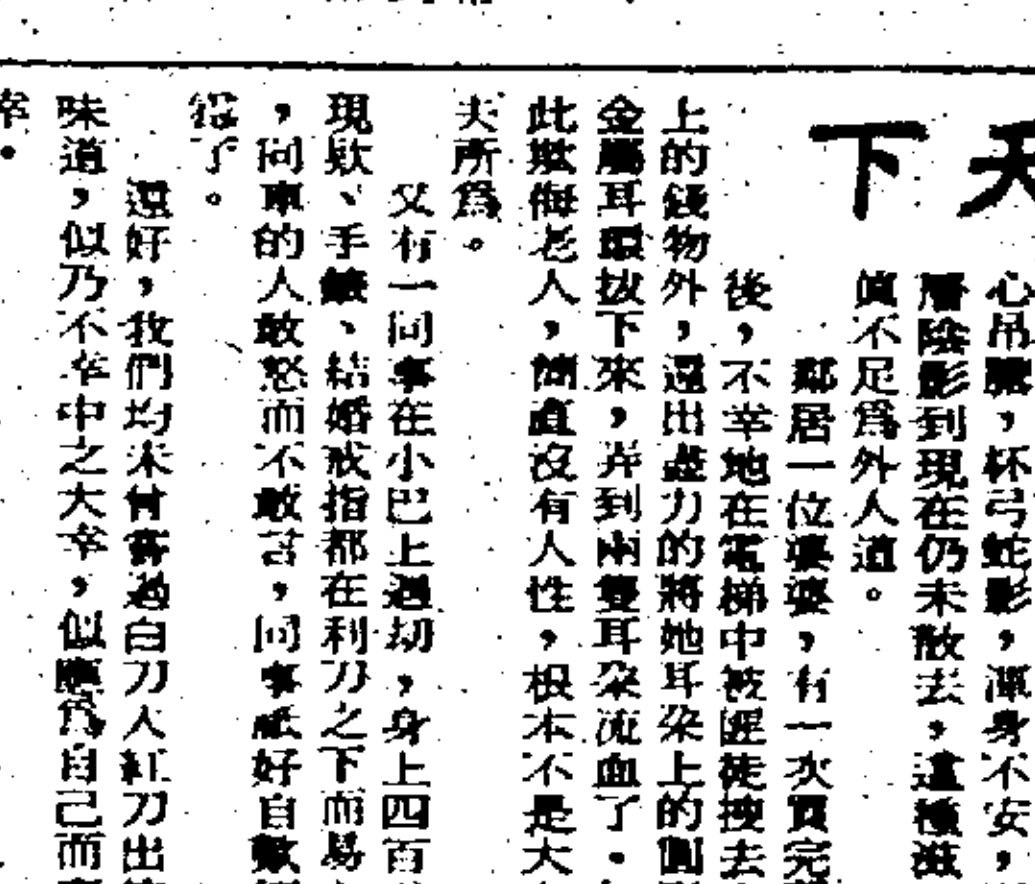 天下
心吊膽，杯弓蛇影，渾身不安，
層陰影到現在仍未散去，這種滋
眞不足爲外人道。
鄰居一位婆婆，有一次買完
後，不幸地在電梯中被匪徒搜去
上的錢物外，還出盡力的將她耳朶上的
金屬耳環拔下來，弄到兩雙耳朶流血了。
此欺侮老人，簡直沒有人性，根本不是大
夫所爲。
又有一同事在小巴上遇劫，身上四百
現欵、手錶、結婚戒指都在利刀之下而易
，同車的人敢怒而不敢言，同事祗好自歎
了。
還好，我們均未曾嘗過白刀入紅刀出
味道，似乃不幸中之大幸，似應爲自己而
幸。